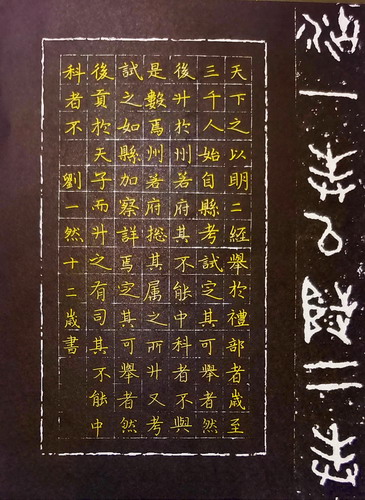 天下之以明二經舉於禮部者歲至
三千人始自縣考試定其可舉者然
後升於州若府其不能中科者不與
是數焉州若府總其属之所升又考
試之如縣加察詳焉定其可舉者然
後貢於天子而升之有司其不能中
科者不 劉一然十二歲書